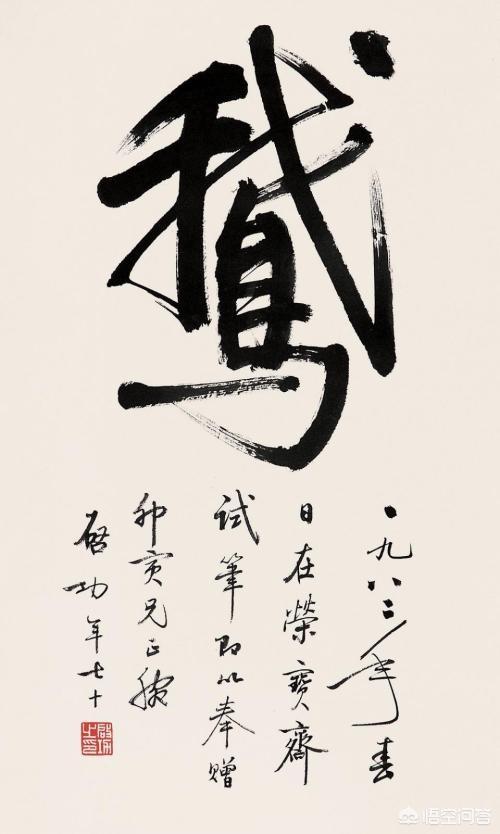 鵞
一九八二年春
日在榮寶齋
試筆即以奉贈
兄正腕
啓功年七十
啟功之印
悟空问答